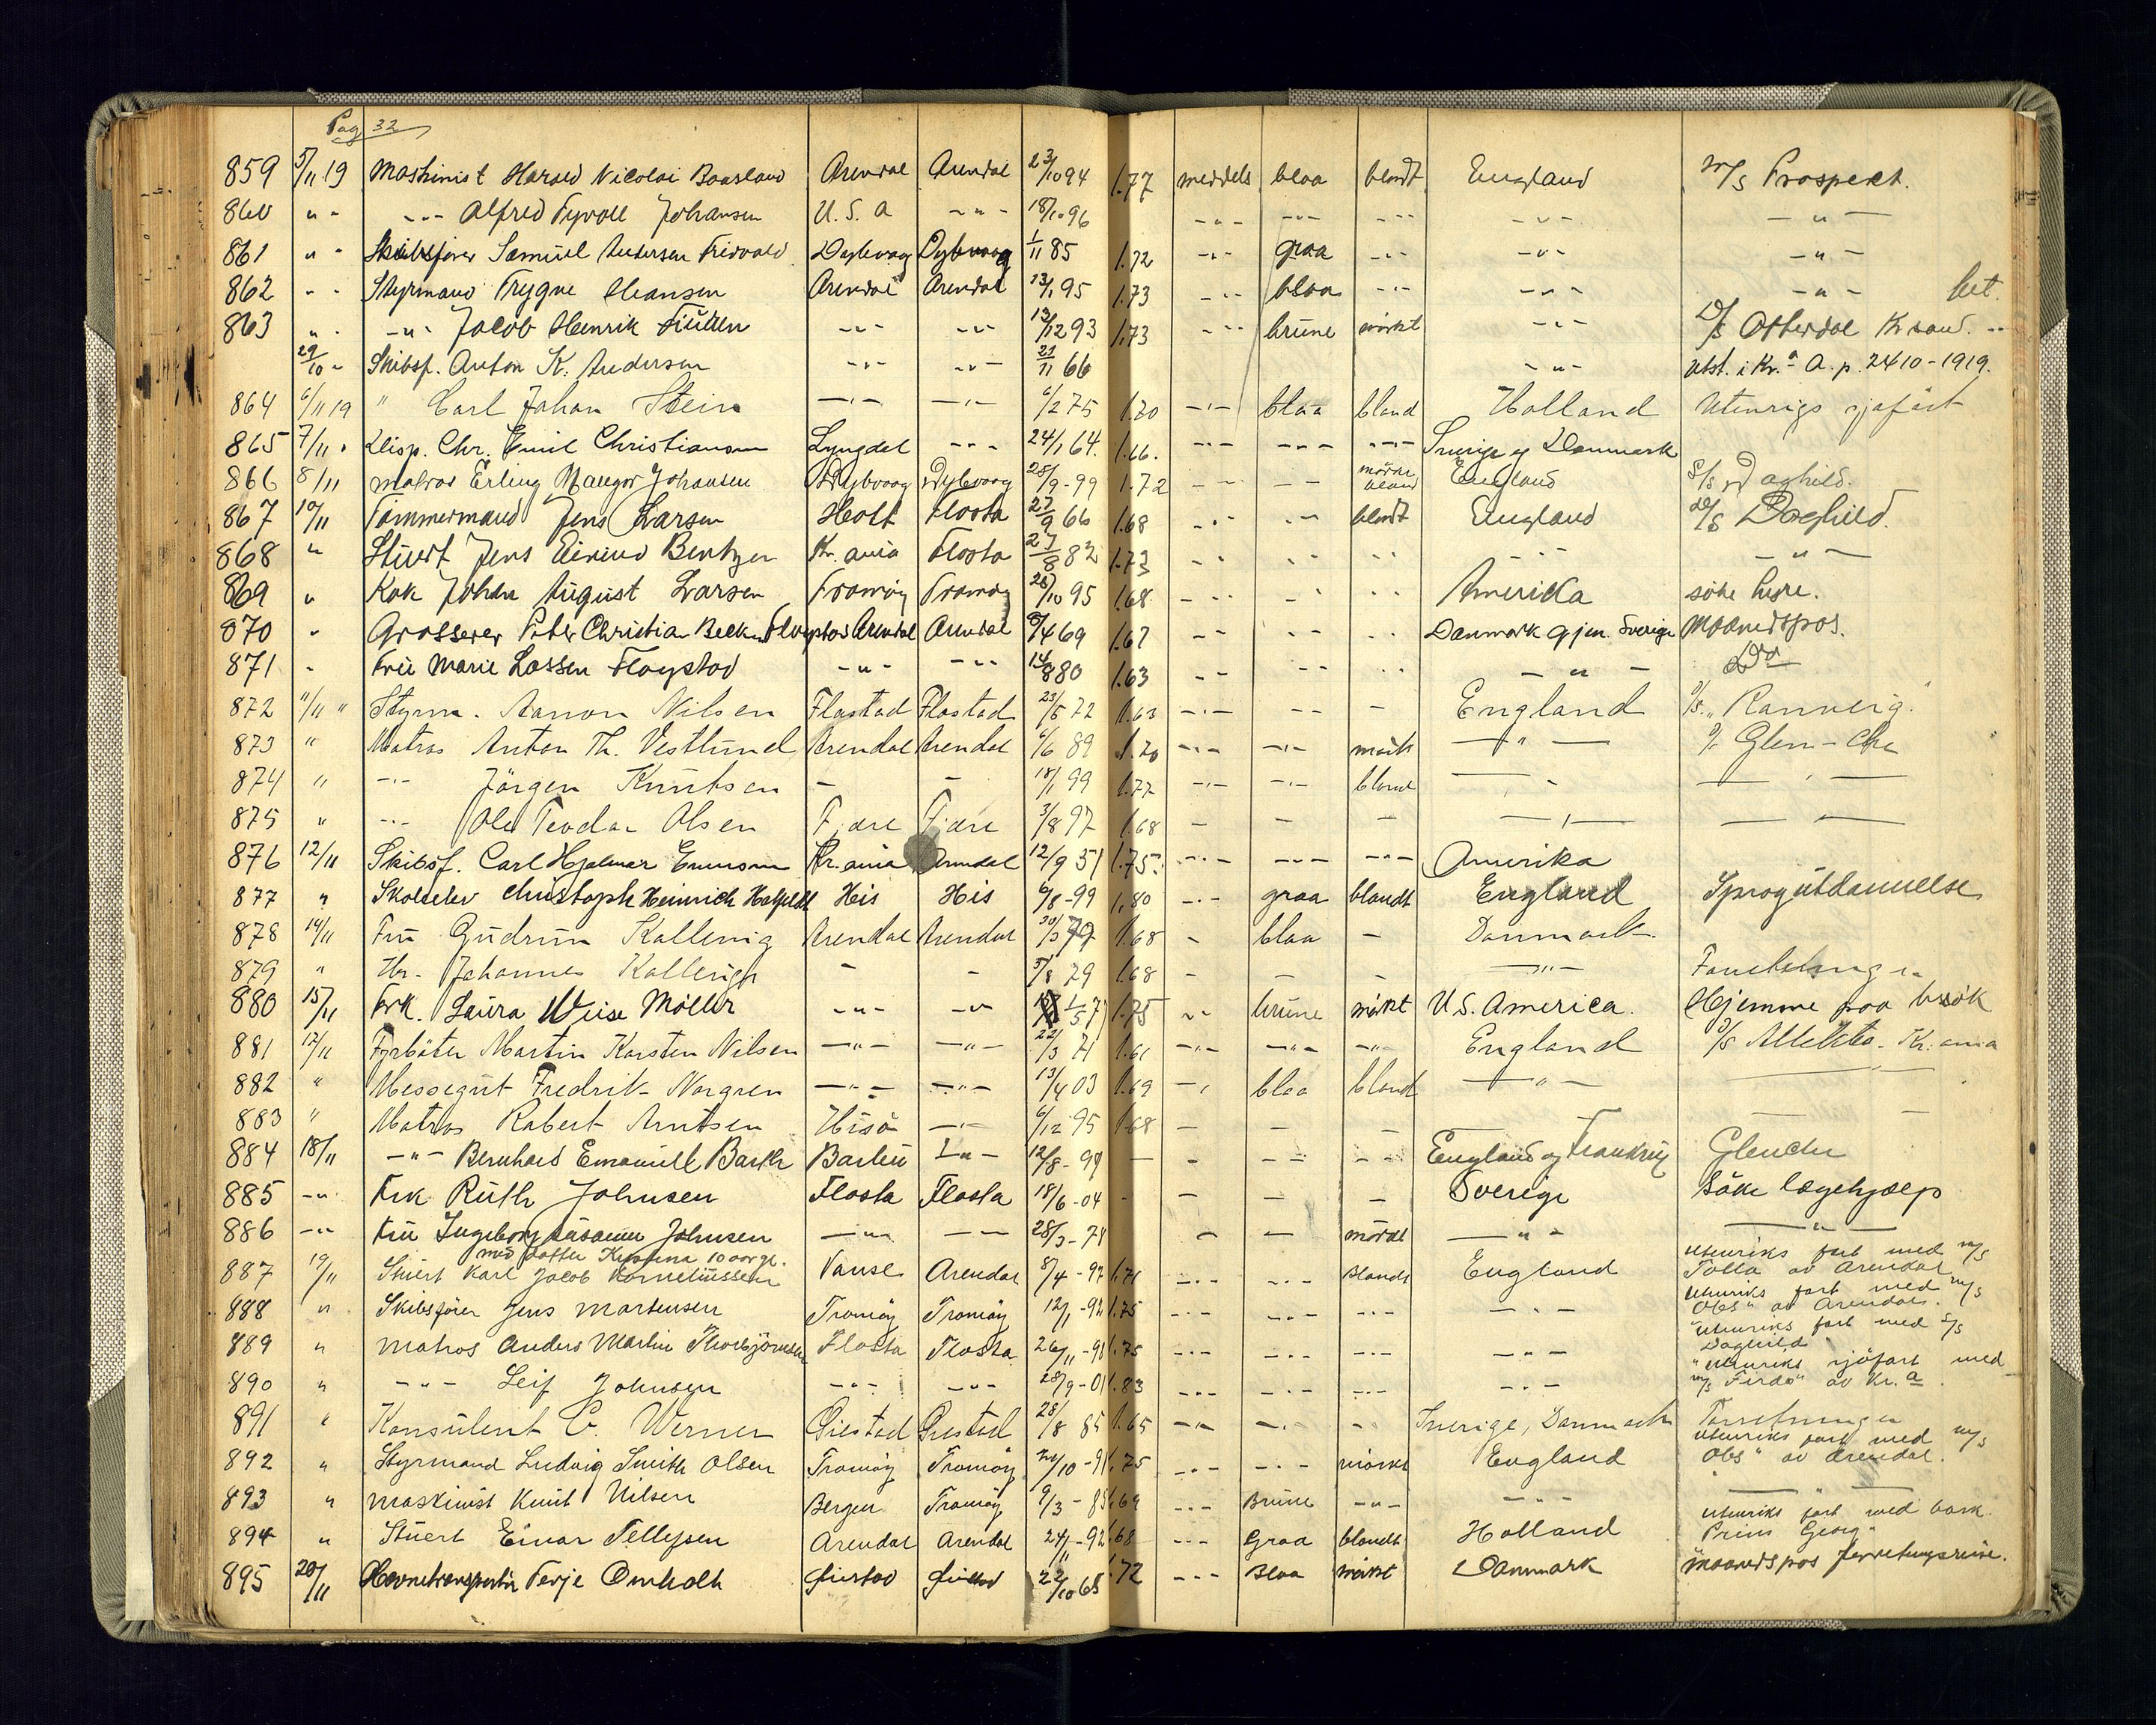 Pag 32
859 5/11 19 Maskinist Harald Nicolai Baasland Arendal Arendal 23/10 94 1.77 meddels blaa blondt England M/S Prospekt.
860 " - -"- Alfred Tyvoll Johansen U.S.A -"- 18/10 96 -"- -"- -"- -"- -"-
861 " - Skibsfører Samuel Andersen Dybvaag Dybvaag 1/11 85 1.72 -"- graa -"- -"- -"-
862 " - Styrmand Trygve Hansen Arendal Arendal 13/1 95 1.73 -"- blaa -"- -"- -"- bet.
863 " - -"- Jacob Henrik -"- -"- 13/12 93 1.73 -"- brune mörkt -"- D/S Otterdal Kr sand. -"-
29/10 - Skibsf. Anton K. Andersen -"- -"- 21/11 66 -"- utst. i Kr.a A. p. 2410-1919.
864 6/11 19 " Carl Johan Stein -"- -"- 6/2 75 1.70 -"- blaa bland Holland Utenrigs sjøfart
865 7/11 - Disp. Chr. Emil Christiansen Lyngdal -"- 24/1 64. 1.66. -"- -"- -"- Sverige og Danmark
866 8/11 matros Erling Johansen Dybvaag Dybvaag 25/9-99 1.72 - - - - mörke bland England S/S Daghild.
867 10/11 Tömmermand Jens Larsen Holt Flosta 27/9 66 1.68 -"- -"- blondt England D/S Daghild.
868 " Stuert Jens Eivind Bentzen Kr.ania Flosta 27/8 82 1.73 -"- -"- -"- -"- -"-
869 " Kok Johan August Larsen Tromöy Tromöy 26/10 95 1.68 -"- -"- -"- Amerika söke hyre.
870 " Grosserer Peter Christian Beck Fløystad Arendal Arendal 5/4 69 1.67 -"- -"- -"- Danmark gjen. Sverige Maanedspas.
871 - Frü Marie Lassen Fløystad -"- -"- 14/8 80 1.63 -"- -"- -"- -"- Do
872 11/11 " Styrm. Aanon Nilsen Flastad Flastad 23/5 72 1.63 -"- -- - England S/S. "Ranveig".
873 " Matros Anton Th. Vestlund Arendal Arendal 6/6 89 1.70 -"- -"- mörk -"- S/S Glen-
874 " -"- Jörgen Knutsen - - 18/1 99 1.77 -"- -"- bland -"- -"-
875 " -"- Ole Teodor Olsen Fjære Fjære 3/8 97 1.68 - - - -"- - -
876 12/11 Skibsf. Carl Hjalmar Kr.ania Arendal 12/9 51 1.75. -"- -"- -"- Amerika
877 " Skoleelev Christoph Heinrich His His 6/8-99 1,80 -"- graa blondt England Sprogutdannelse
878 14/11 Fru Gudrun Kallevig Arendal Arendal 30/3 79 1.68 - blaa - Danmark.
879 " Hr. Johannes Kallevig - - 5/8 79 1.68 - - - -"-
880 15/11 Frk. Laura Wiise Möller -"- -"- 1/5 7 1.75 -"- brune mörkt U.S. America. Hjemme paa besök
881 17/11 Fyrböter Martin Karsten Nilsen -"- -"- 22/3 71 1.61 -"- -"- -"- England S/S Kr.ania
882 " Messegut Fredrik Norgren -"- -"- 13/4 03 1.69 -"- blaa bland -"- -"-
883 " Matros Robert Arntsen Hisö -"- 6/12 95 1.68 - - - - -
884 18/11 -"- Bernhard Emanuell Barth Barbu -"- 12/8-99 - - - - -- England og Frankrig
885 -"- Frk Ruth Johnsen Flosta Flosta 18/6-04 - - - - Sverige söke lægehjælp
886 -"- Frü Ingeborg Susanne Johnsen -"- -"- 28/3-78 - - mörde -"- -"-
med datter 10 aar gl.
887 19/11 Stuert Karl Jacob Korneliussen Vanse Arendal 8/4-97 1.71 -"- -"- Blondt England utenriks fart med M/S Tolla av Arendal
888 " Skibsfører Jens Martensen Tromöy Tromöy 12/1-92 1.75 -"- -"- -"- -"- utenriks fart med M/S "Obs" av Arendal.
889 " Matros Anders Martin Thorbjörnsen Flosta Flosta 26/11-98 1.75 -"- -"- -"- -"- utenriks fart med S/S "Daghild"
890 " -"- Leif Johnsen -"- -"- 28/9-01 1.83 -"- -"- -"- -"- utenriks sjöfart med M/S "Ferdo" av Kr.a.
891 " Konsulent C. Werner Öiestad Öiestad 28/8 85 1.65 -"- -"- -"- Sverige, Danmark Forretninger
892 " Styrmand Ludvig Smith Olsen Tromöy Tromöy 20/10-91 1.75 -"- -"- mörkt England utenriks fart med M/S "Obs" av Arendal.
893 " Maskinist Knut Nilsen Bergen Tromöy 9/3-85 1.69 -"- Brune -"- -"- -"-
894 " Stuert Einar Tellefsen Arendal Arendal 24/11-92 1.68 -"- Graa blondt Holland utenriks fart med bark. "Prins Georg"
895 20/11 Havnetransportör Terje Omholt Öiestad Öiestad 22/10 65 1.72 -"- Blaa mörkt Danmark maanedspas forretningsreise.